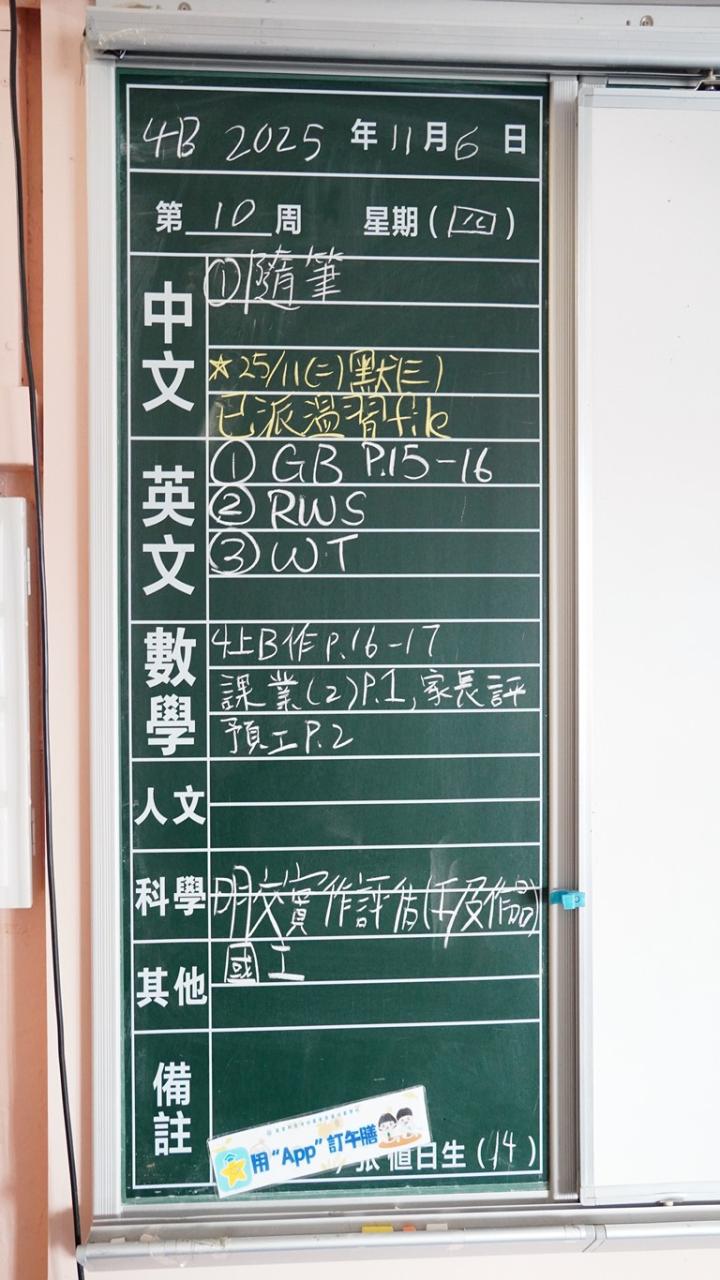 4B 2025 年 11 月 6 日
第 10 周 星期 (四)
中文
① 隨筆
★ 25/11 (二) 默(三)
已派溫習file
英文
① GB P.15-16
② RWS
③ WT
數學
4上B作 P.16-17
課業(2) P.1, 家長評
預工 P.2
人文
科學
明交實作評估(手及作品)
其他
國工
備註
用“App”訂午膳
張 值日生 (14)